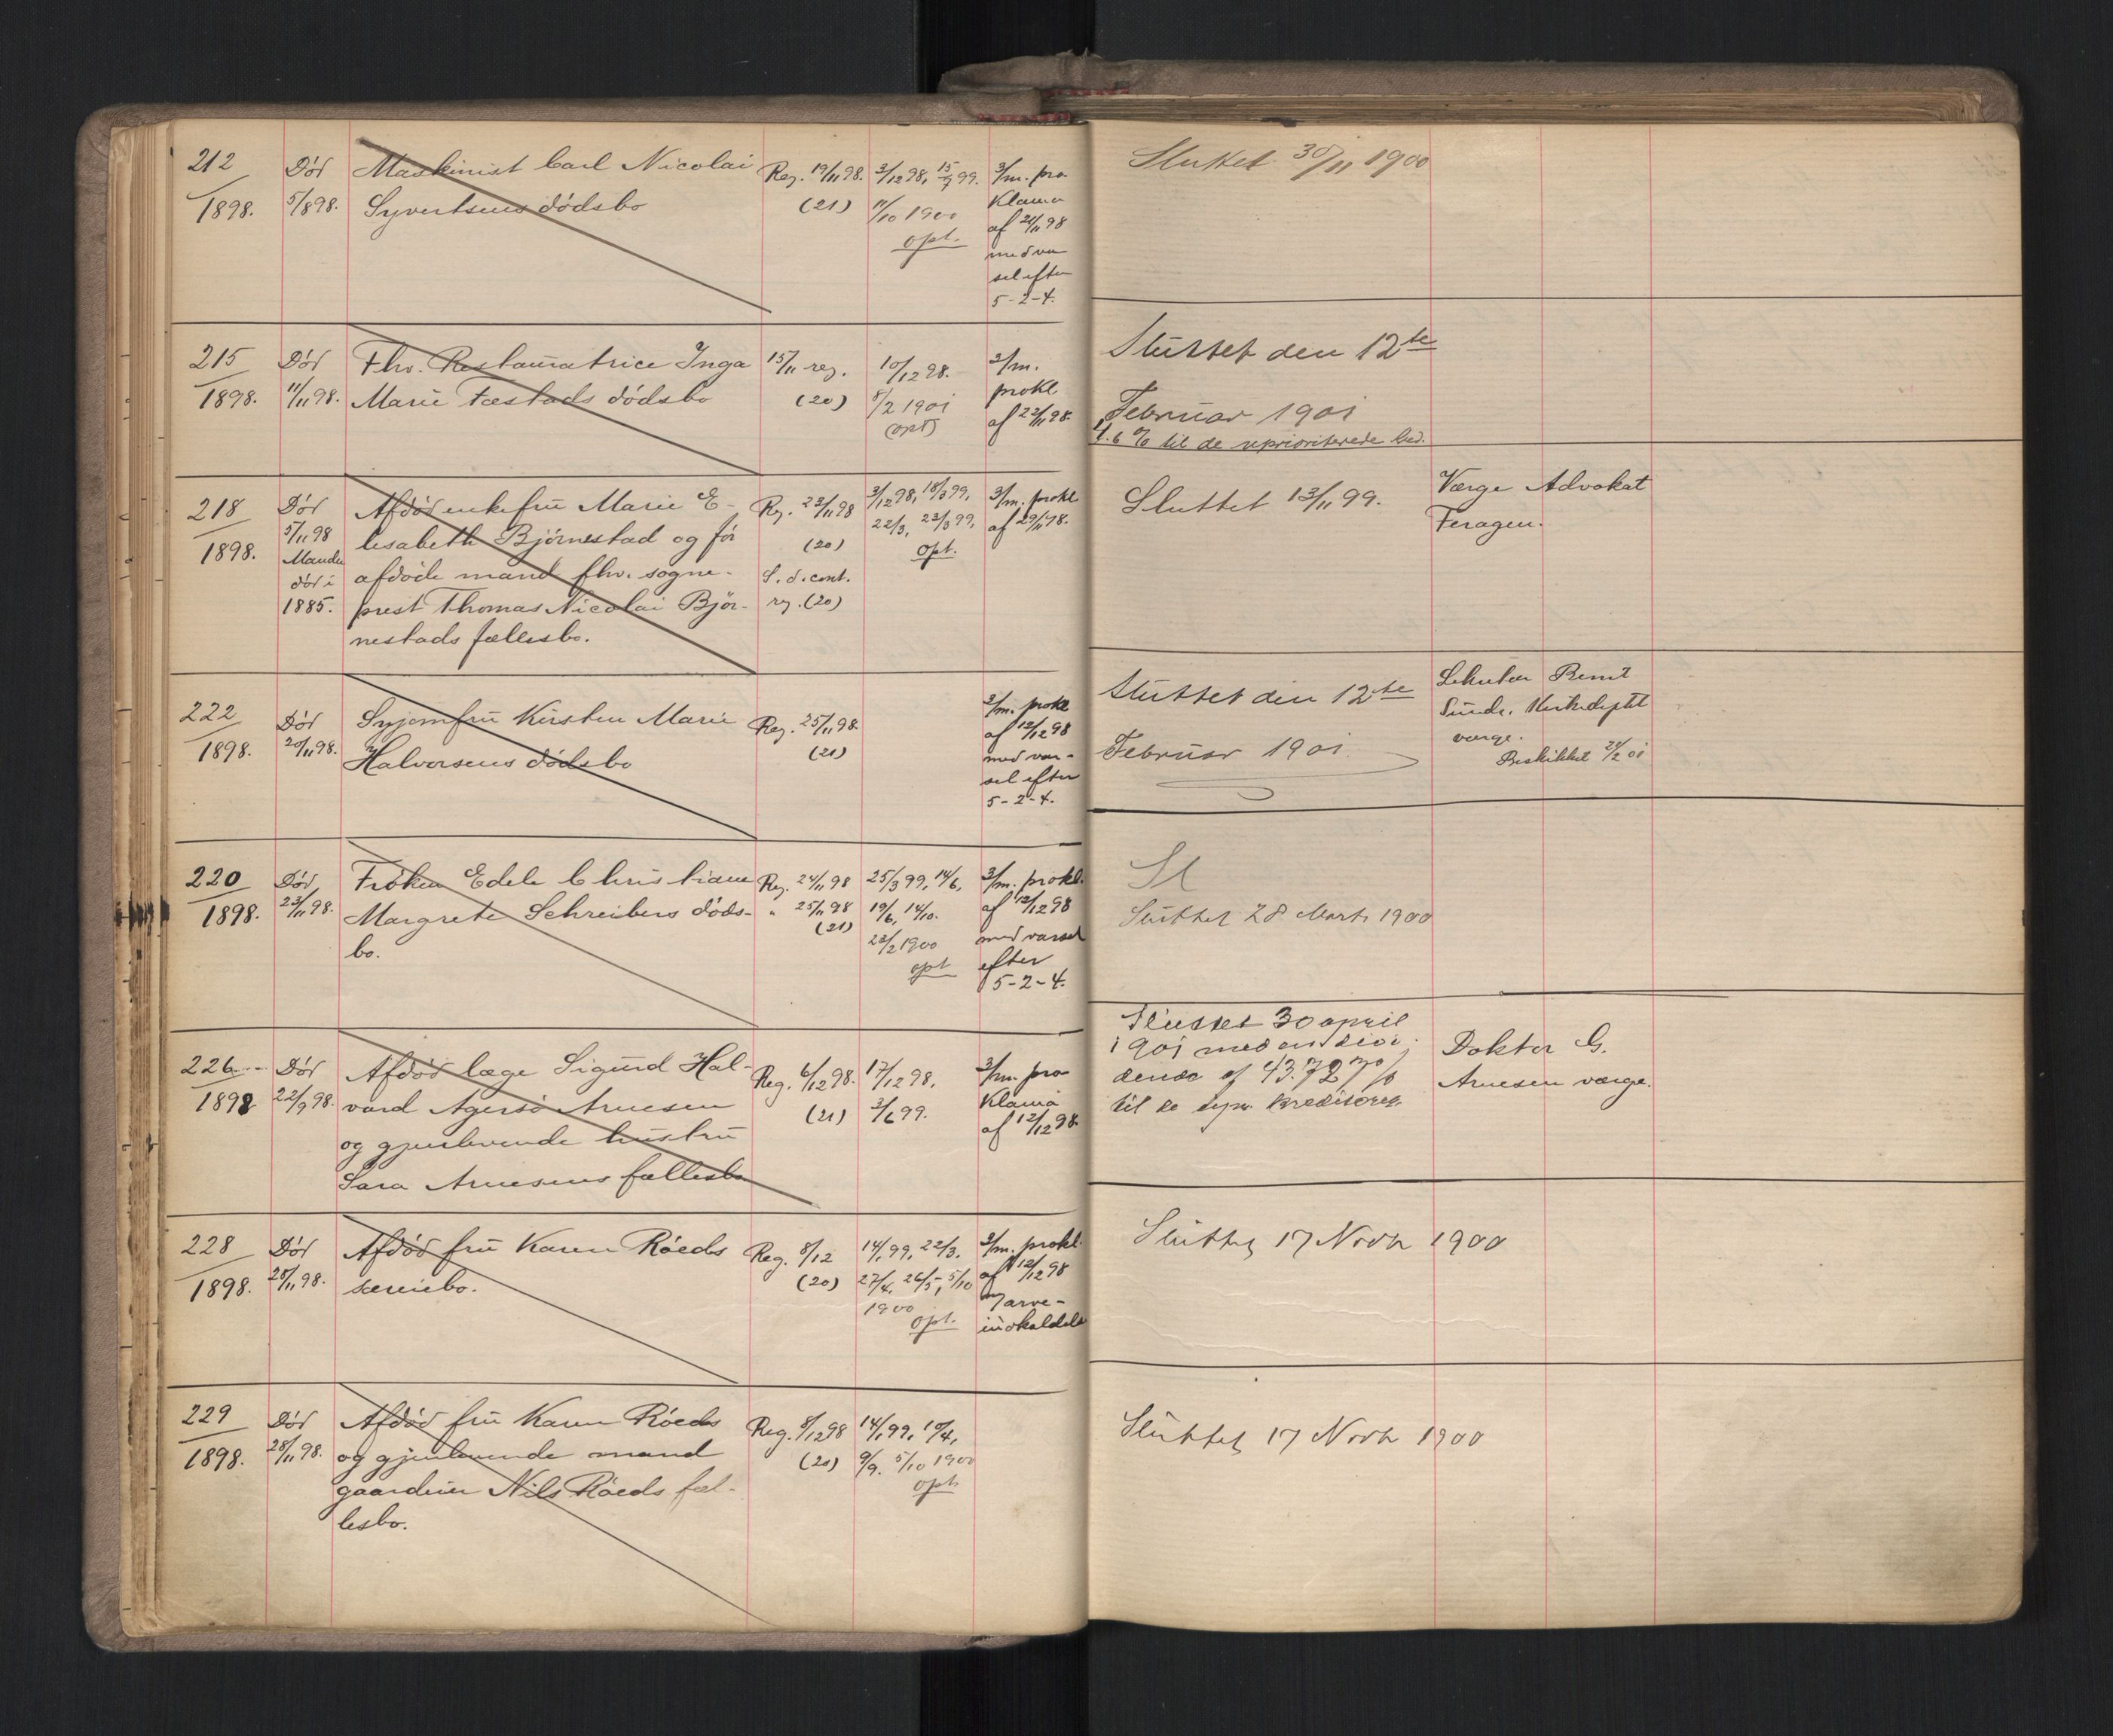 212
1898.
Død
5/8 98.
Maskinist Carl Nicolai
Syvertsens dødsbo
Reg. 19/11 98.
(21)
3/12 98, 15/7 99.
11/10 1900
opt.
3/m. pro
klama
af 21/11 98
med var
sel efter
5-2-4.
Sluttet 30/11 1900
215
1898.
Død
11/11 98.
Fhv. Restauratrice Inga
Marie Fæstads dødsbo
15/11 reg.
(20)
10/12 98.
8/2 1901
(opt)
3/m.
prokl.
af 22/11 98.
Sluttet den 12te
Februar 1901
til de uprioriterede
218
1898.
Død
5/11 98
Manden
død i
1885.
Afdød enkefru Marie E-
lisabeth Bjørnestad og før
afdøde mand fhv. sogne-
prest Thomas Nicolai Bjør-
nestads fællesbo.
Reg. 23/11 98
(20)
S. d. cont.
reg. (20)
3/12 98, 18/3 99,
22/3, 23/3 99,
opt.
3/m. prokl
af 29/11 98.
Sluttet 13/11 99.
Værge Advokat
Feragen.
222
1898.
Død
20/11 98.
Syjomfru Kirsten Marie
Halvorsens dødsbo
Reg. 25/11 98.
(21)
3/m. prokl
af 12/12 98
med var-
sel efter
5-2-4.
Sluttet den 12te
Februar 1901
værge.
Beskikket
220
1898.
Død
23/11 98.
Frøken Edele Christiane
Margrete Schreibers døds-
bo.
Reg. 24/11 98
" 25/11 98
(21)
25/3 99, 14/6,
19/6, 14/10.
23/2 1900
opt
3/m. prokl.
af 12/12 98
med varsel
efter
5-2-4.
Sl
Sluttet 28 Marts 1900
226
1898
Død
22/9 98.
Afdød læge Sigurd Hal-
vard Agersø Arnesen
og gjenlevende hustru
Sara Arnesens fællesbo
Reg. 6/12 98.
(21)
17/12 98,
3/6 99.
3/m. pro
klama
af 12/12 98.
Sluttet 30 april
1901 med en divi-
dende af 43.72 %
til de kreditorer.
Doktor G.
Arnesen værge.
228
1898.
Død
28/11 98.
Afdød fru Karen Røeds
særeiebo.
Reg. 8/12
(20)
14/1 99, 22/3.
27/4, 26/5, 5/10
1900
opt.
3/m. prokl.
af 12/12 98
og arve-
indkaldelse
Sluttet 17 Novbr 1900
229
1898.
Død
28/11 98.
Afdød fru Karen Røeds
og gjenlevende mand
gaardeier Nils Røeds fæl-
lesbo.
Reg. 8/12 98
(20)
14/1 99, 10/4,
9/9. 5/10 1900
opt.
Sluttet 17 Novbr 1900